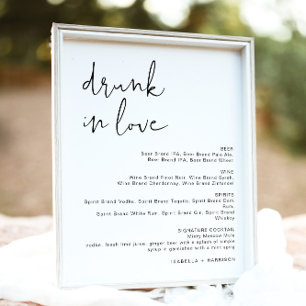 drunk
in love
BEER
Beer Brand IPA, Beer Brand Pale Ale,
Beer Brand IPA, Beer Brand Sheer
WINE
Wine Brand Pinot Noir, Wine Brand Syrah,
Wine Brand Chardonnay, Wine Brand Zinfandel
SPIRITS
Spirit Brand Vodka, Spirit Brand Tequila, Spirit Brand Dark
Rum,
Spirit Brand White Rum, Spirit Brand Gin, Spirit Brand
Whiskey
SIGNATURE COCKTAIL
Minty Moscow Mule
vodka, fresh lime juice, ginger beer with a splash of simple
syrup in garnished with a mint sprig
ISABELLA + HARRISON